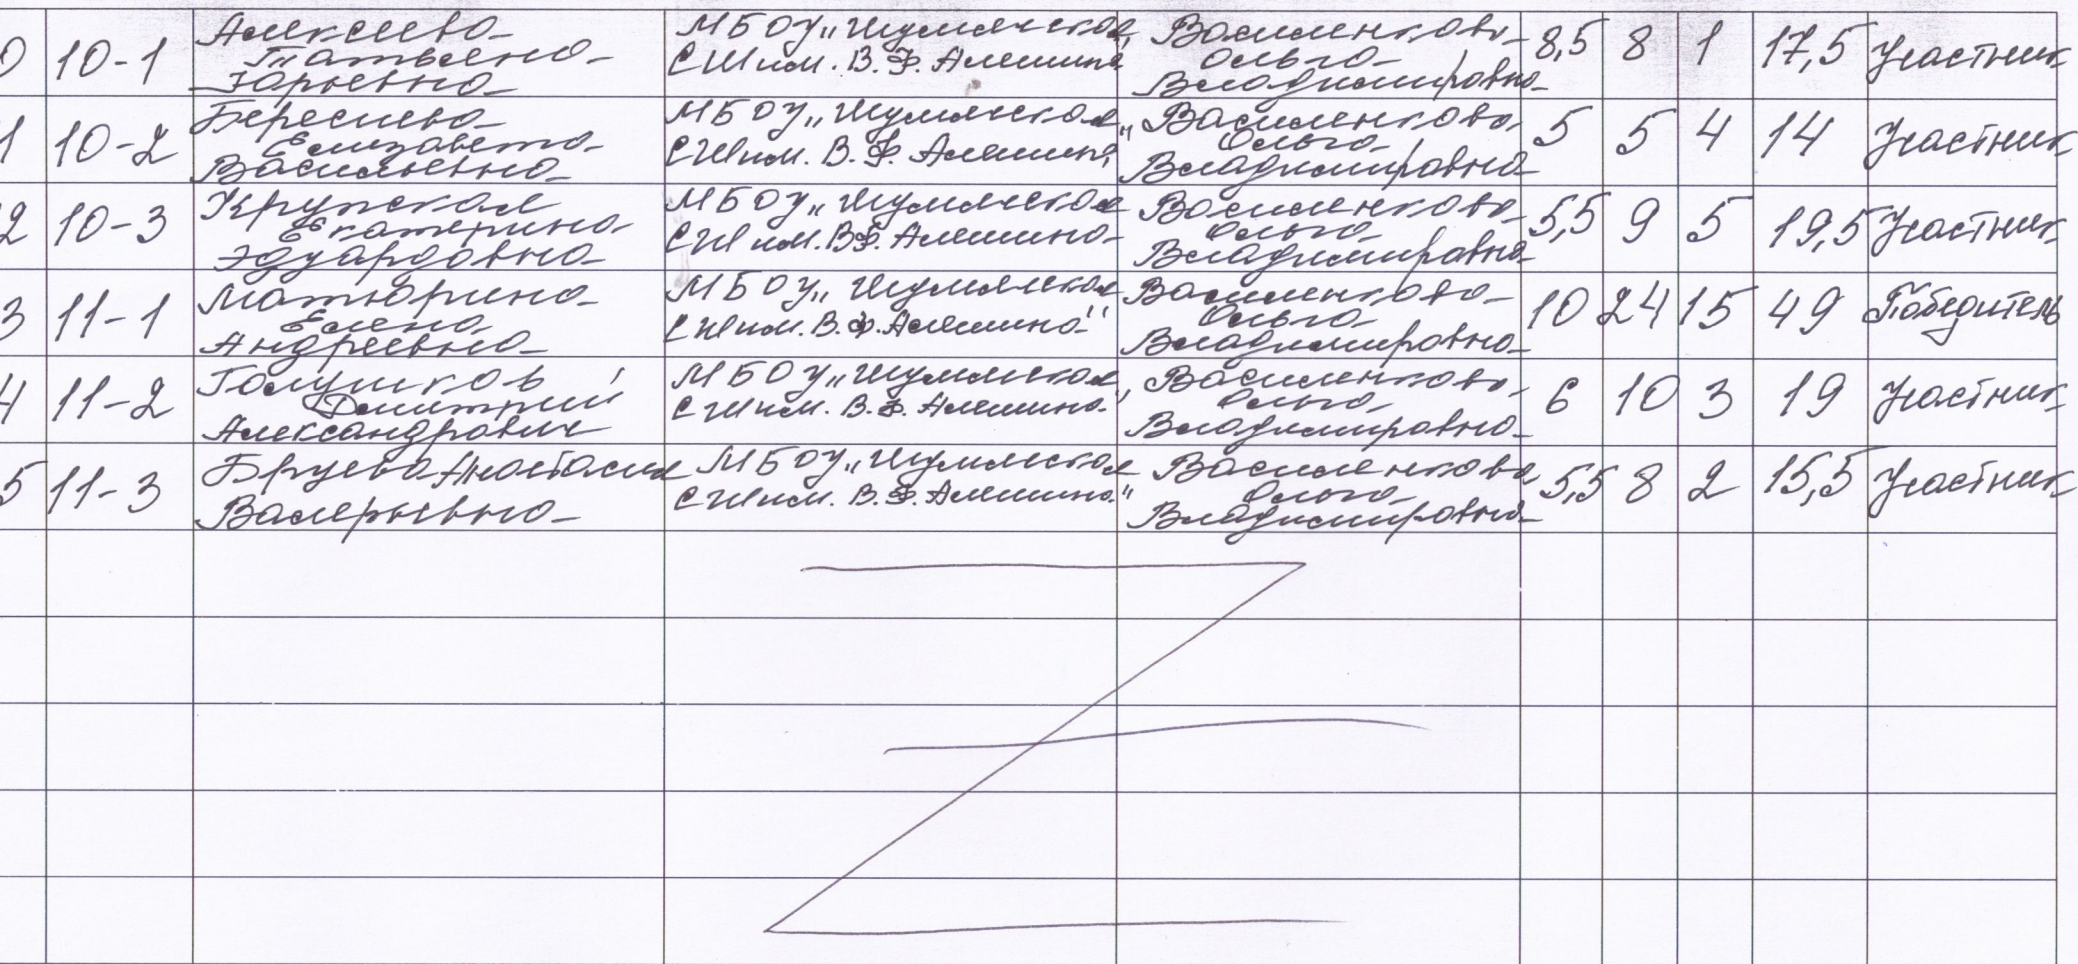 0 10-1 Алексеева Татьяна Юрьевна МБОУ „Шумячская СШ им. В.Ф. Алешина" Василенкова Ольга Владимировна 8,5 8 1 17,5 Участник
1 10-2 Береснева Елизавета Васильевна МБОУ „Шумячская СШ им. В.Ф. Алешина" Василенкова Ольга Владимировна 5 5 4 14 Участник
2 10-3 Крупская Екатерина Эдуардовна МБОУ „Шумячская СШ им. В.Ф. Алешина Василенкова Ольга Владимировна 5,5 9 5 19,5 Участник
3 11-1 Матюрина Елена Андреевна МБОУ „Шумячская СШ им. В.Ф. Алешина" Василенкова Ольга Владимировна 10 24 15 49 Победитель
4 11-2 Голушков Дмитрий Александрович МБОУ „Шумячская СШ им. В.Ф. Алешина" Василенкова Ольга Владимировна 6 10 3 19 Участник
5 11-3 Бруева Анастасия Валерьевна МБОУ „Шумячская СШ им. В.Ф. Алешина" Василенкова Ольга Владимировна 5,5 8 2 15,5 Участник